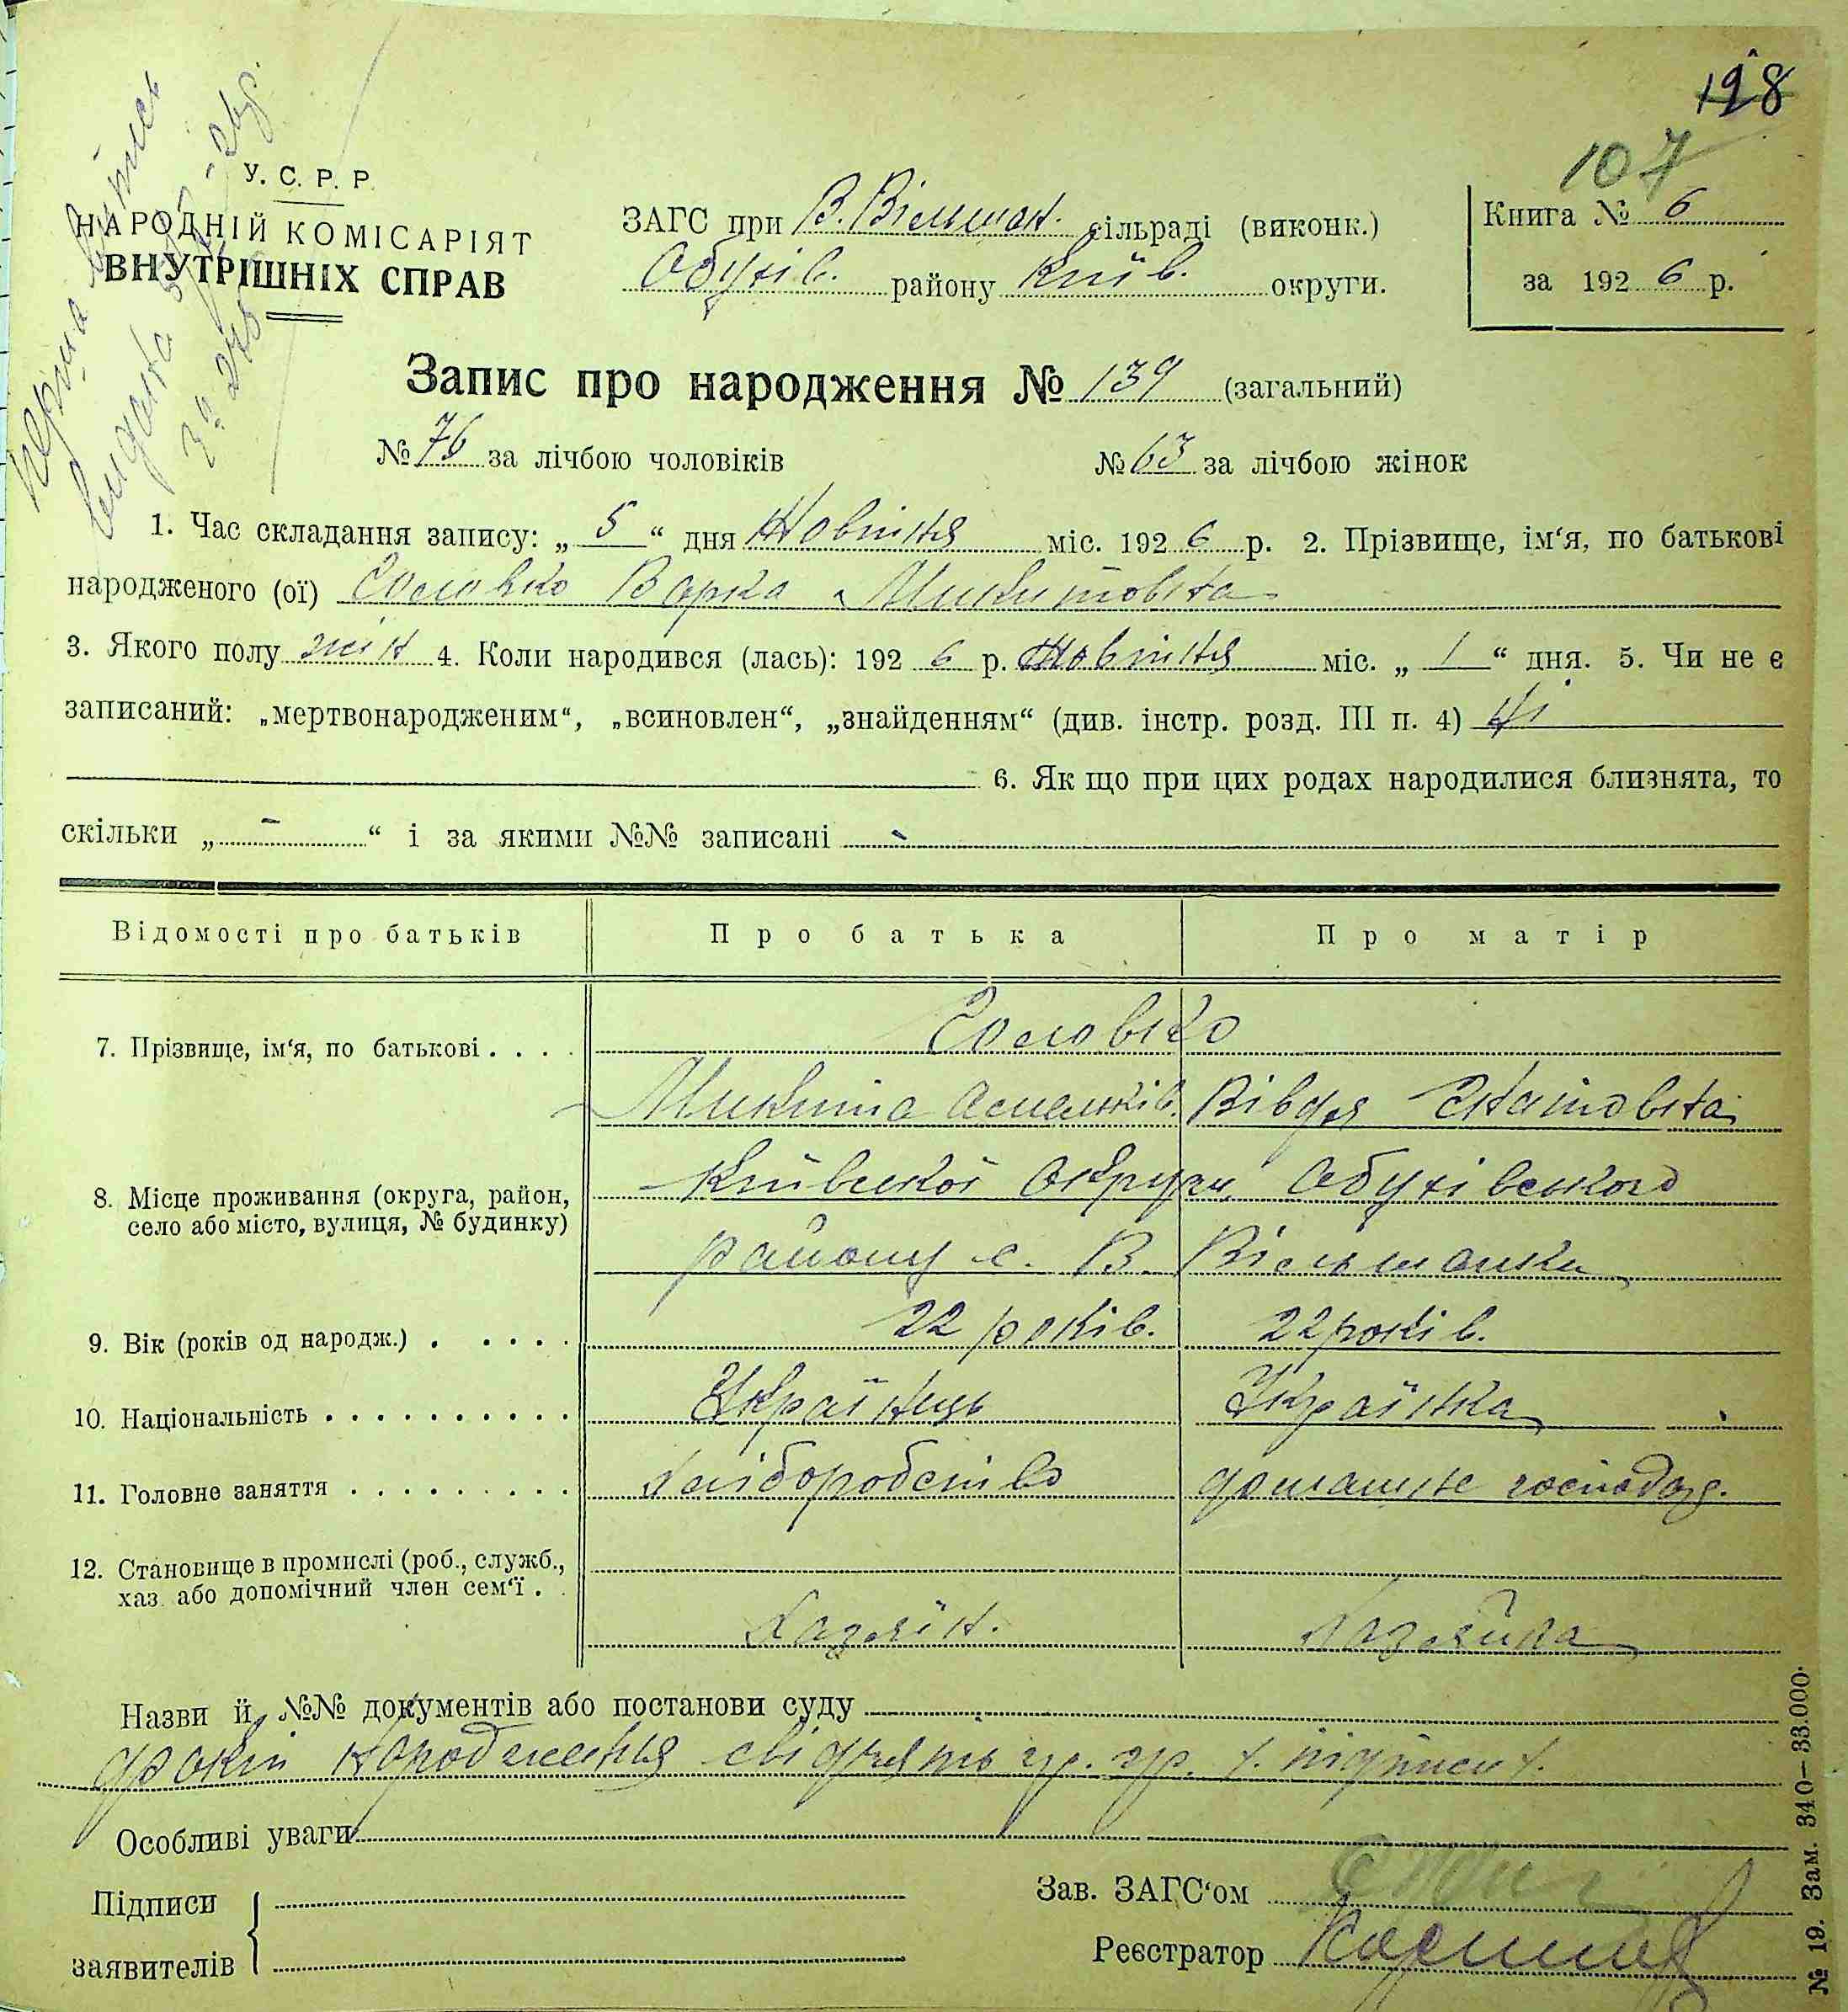 128
107
У. С. Р. Р.
НАРОДНІЙ КОМІСАРІЯТ
ВНУТРІШНІХ СПРАВ
ЗАГС при В. Вільшан. сільраді (виконк.)
Обухів. району Київ. округи.
Книга № 6
за 192 6 р.
Запис про народження № 139 (загальний)
№ 76 за лічбою чоловіків № 63 за лічбою жінок
1. Час складання запису: „ 5 “ дня Жовтня міс. 192 6 р. 2. Прізвище, ім‘я, по батькові
народженого (ої) Головко Варка Микитовна
3. Якого полу жін 4. Коли народився (лась): 192 6 р. Жовтня міс. „ 1 “ дня. 5. Чи не є
записаний: „мертвонародженим“, „всиновлен“, „знайденням“ (див. інстр. розд. III п. 4) Ні
6. Як що при цих родах народилися близнята, то
скільки „ - “ і за якими №№ записані -
Відомості про батьків Про батька Про матір
7. Прізвище, ім‘я, по батькові . . . . Головко
Микита Вівдя Гнатовна
8. Місце проживання (округа, район, село або місто, вулиця, № будинку)
Київської Округи, Обухівського
району с. В. Вільшанки
9. Вік (років од народж.) . . . . . 22 років. 22 років.
10. Національність . . . . . . . . . . Українець Українка
11. Головне заняття . . . . . . . . . хліборобство домашнє господар.
12. Становище в промислі (роб., служб.,
хаз. або допомічний член сем‘ї . .
Хазяїн. Хазяйка
Назви й №№ документів або постанови суду
факт народження свідчать гр. гр.
Особливі уваги
Підписи
заявителів
Зав. ЗАГС‘ом
Реєстратор
№ 19. Зам. 340—33.000.